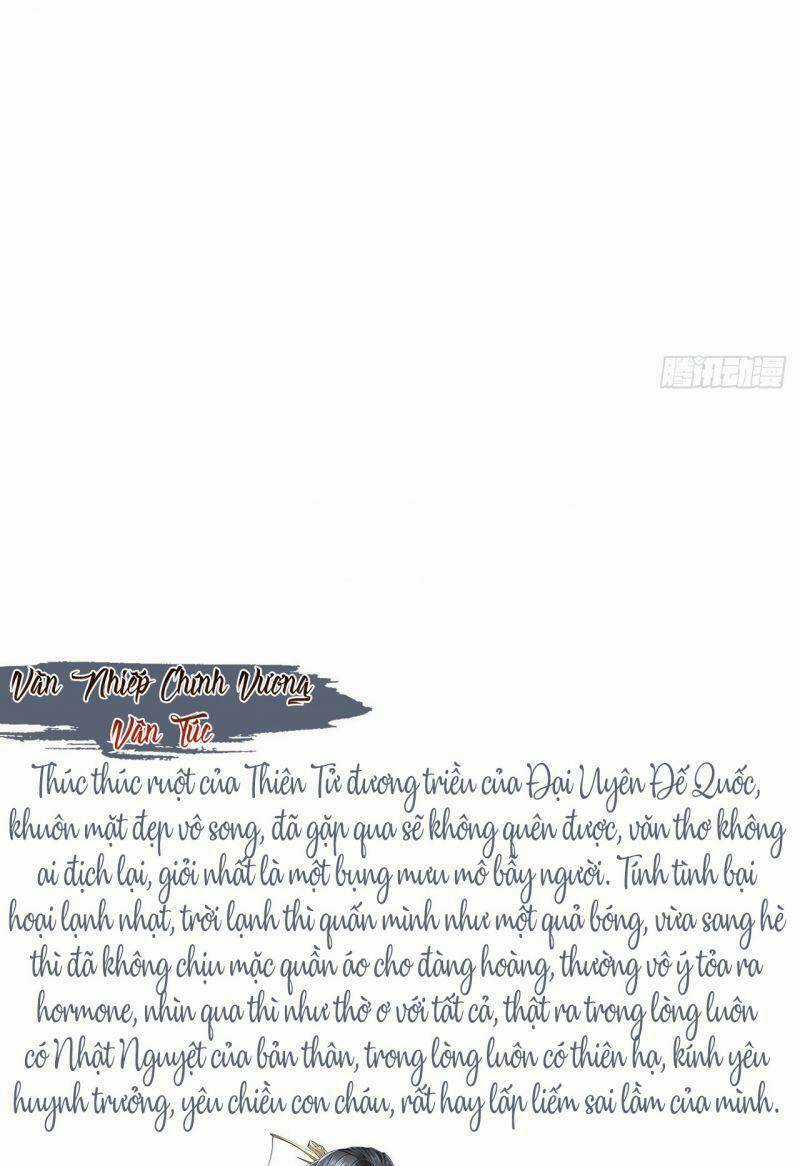 腾讯动漫
Văn Nhiếp Chính Vương
Văn Túc
Thúc thúc ruột của Thiên Tử đương triều của Đại Uyên Đế Quốc,
khuôn mặt đẹp vô song, đã gặp qua sẽ không quên được, văn thơ không
ai địch lại, giỏi nhất là một bụng mưu mô bẫy người. Tính tình bại
hoại lạnh nhạt, trời lạnh thì quấn mình như một quả bóng, vừa sang hè
thì đã không chịu mặc quần áo cho đàng hoàng, thường vô ý tỏa ra
hormone, nhìn qua thì như thờ ơ với tất cả, thật ra trong lòng luôn
có Nhật Nguyệt của bản thân, trong lòng luôn có thiên hạ, kính yêu
huynh trưởng, yêu chiều con cháu, rất hay lấp liếm sai lầm của mình.